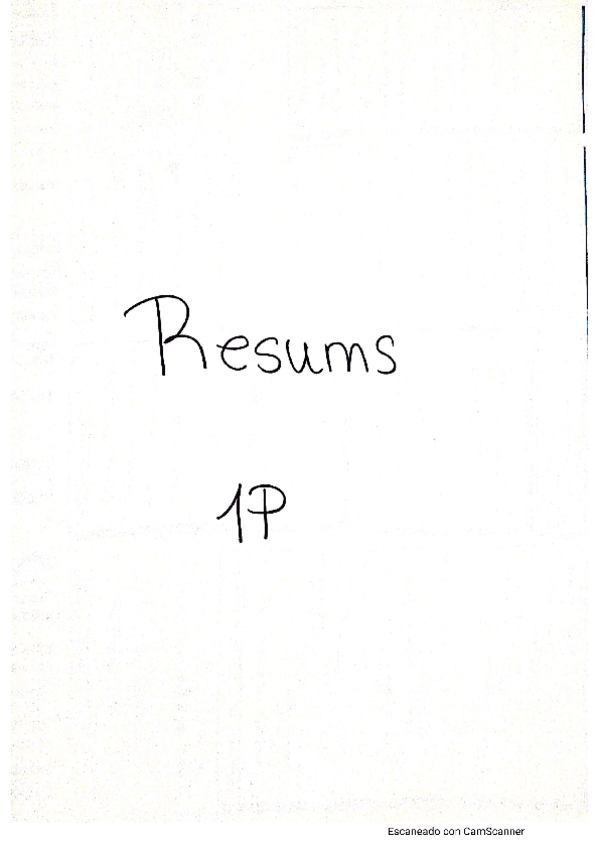 Resums
1P
Escaneado con CamScanner